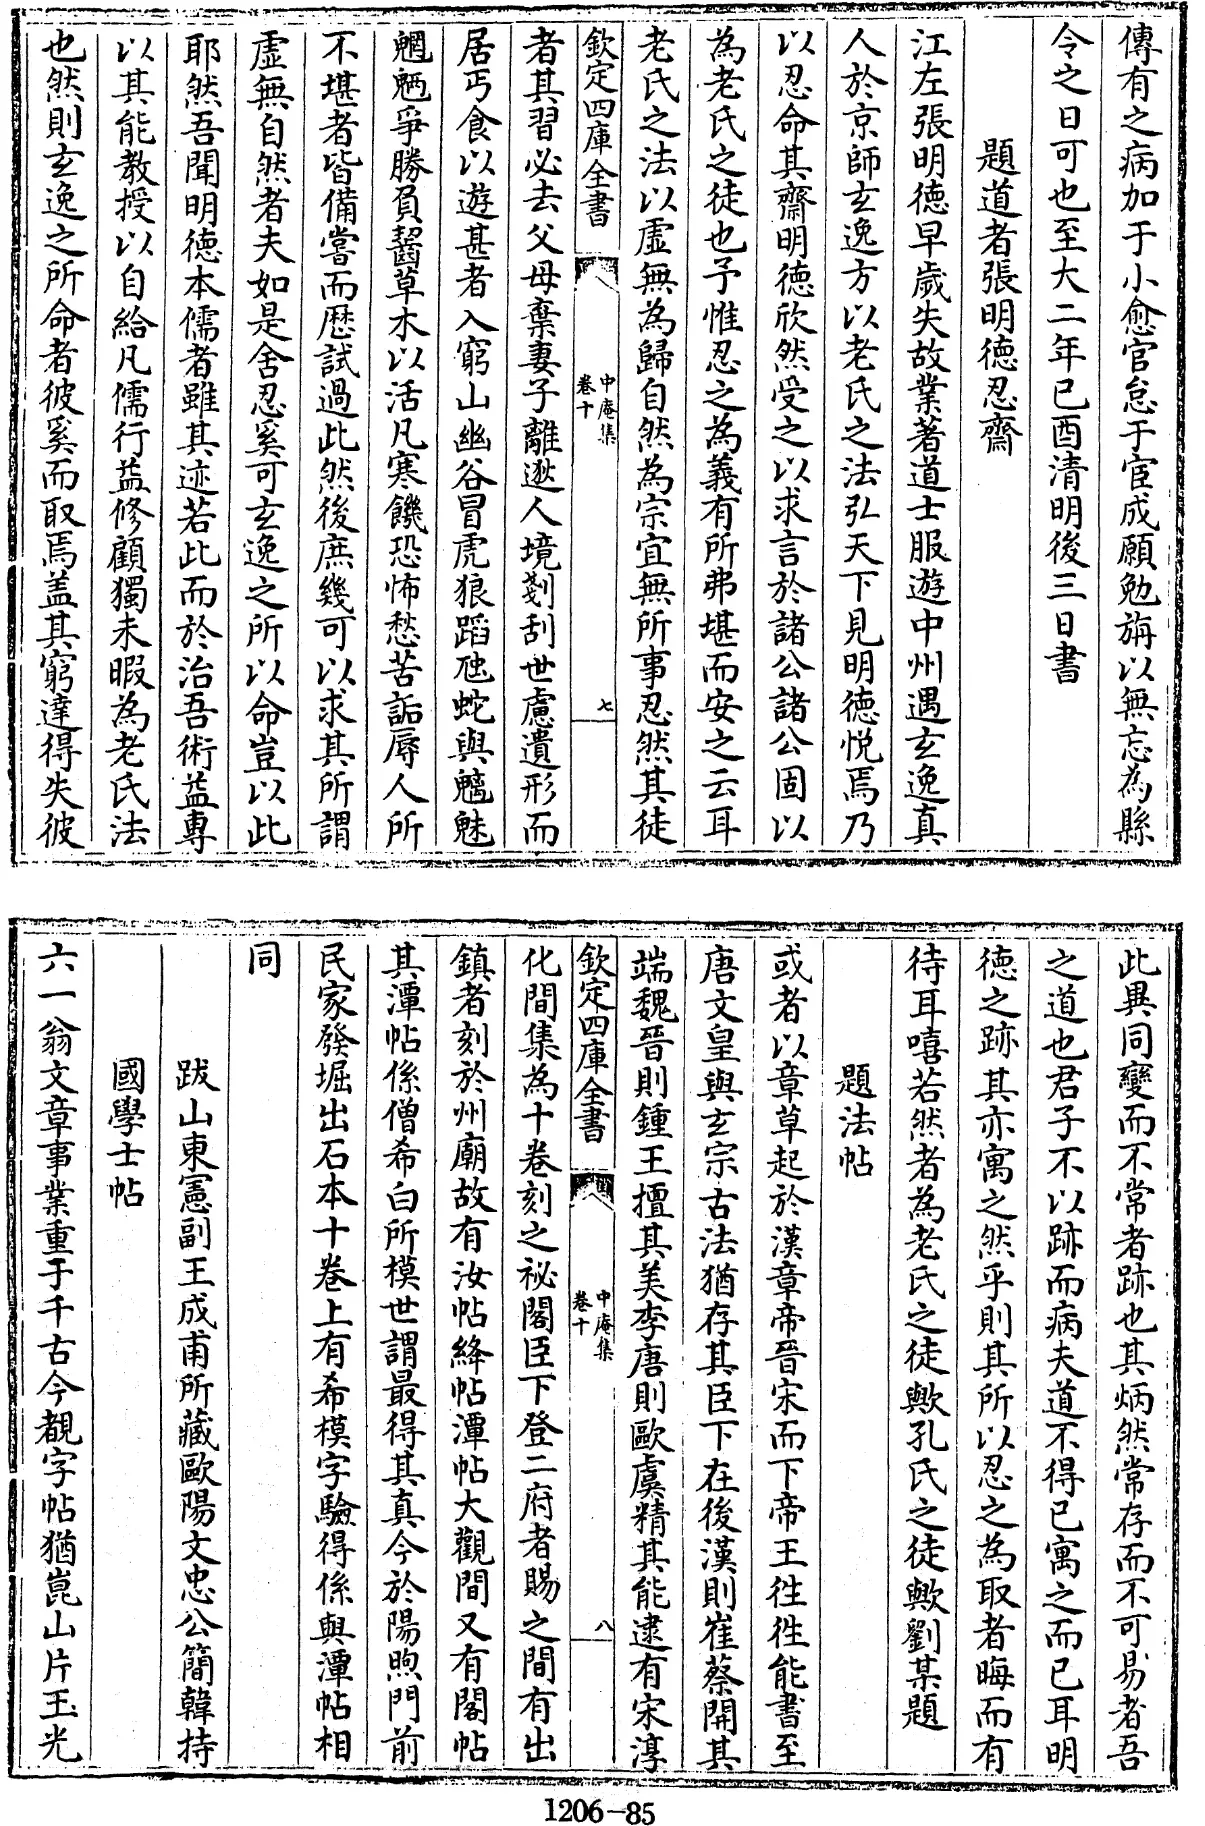 傳有之病加于小愈官怠于宦成願勉旃以無忘為縣
令之日可也至大二年已酉清明後三日書
題道者張明德忍齋
江左張明德早歲失故業著道士服遊中州遇玄逸真
人於京師玄逸方以老氏之法弘天下見明德悅焉乃
以忍命其齋明德欣然受之以求言於諸公諸公固以
為老氏之徒也予惟忍之為義有所弗堪而安之云耳
老氏之法以虛無為歸自然為宗宜無所事忍然其徒
欽定四庫全書
中庵集
卷十
七
者其習必去父母棄妻子離逖人境剗刮世慮遺形而
居丐食以遊甚者入窮山幽谷冒虎狼蹈虺蛇與魑魅
魍魎爭勝負齧草木以活凡寒饑恐怖愁苦詬辱人所
不堪者皆備嘗而歴試過此然後庶幾可以求其所謂
虛無自然者夫如是舍忍奚可玄逸之所以命豈以此
耶然吾聞明德本儒者雖其迹若此而於治吾術益專
以其能教授以自給凡儒行益修顧獨未暇為老氏法
也然則玄逸之所命者彼奚而取焉蓋其窮達得失彼
此異同變而不常者跡也其炳然常存而不可易者吾
之道也君子不以跡而病夫道不得已寓之而已耳明
德之跡其亦寓之然乎則其所以忍之為取者晦而有
待耳嘻若然者為老氏之徒歟孔氏之徒歟劉某題
題法帖
或者以章草起於漢章帝晉宋而下帝王徃徃能書至
唐文皇與玄宗古法猶存其臣下在後漢則崔蔡開其
端魏晉則鍾王擅其美李唐則歐虞精其能逮有宋淳
欽定四庫全書
中庵集
卷十
八
化間集為十卷刻之祕閣臣下登二府者賜之間有出
鎮者刻於州廟故有汝帖絳帖潭帖大觀間又有閣帖
其潭帖係僧希白所模世謂最得其真今於陽煦門前
民家發堀出石本十卷上有希模字驗得係與潭帖相
同
跋山東憲副王成甫所藏歐陽文忠公簡韓持
國學士帖
六一翁文章事業重于千古今覩字帖猶崑山片玉光
1206-85